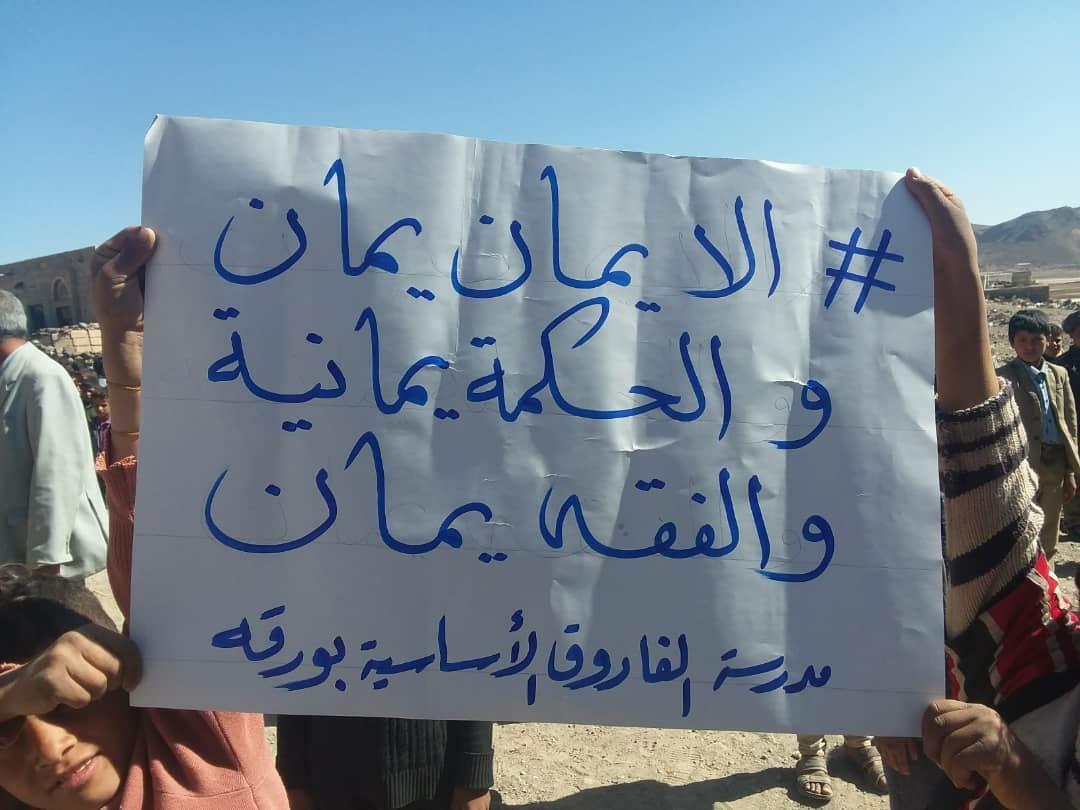 # الايمان يمان
و الحكمة يمانية
والفقه يمان
مدرسة الفاروق الأساسية بورقه